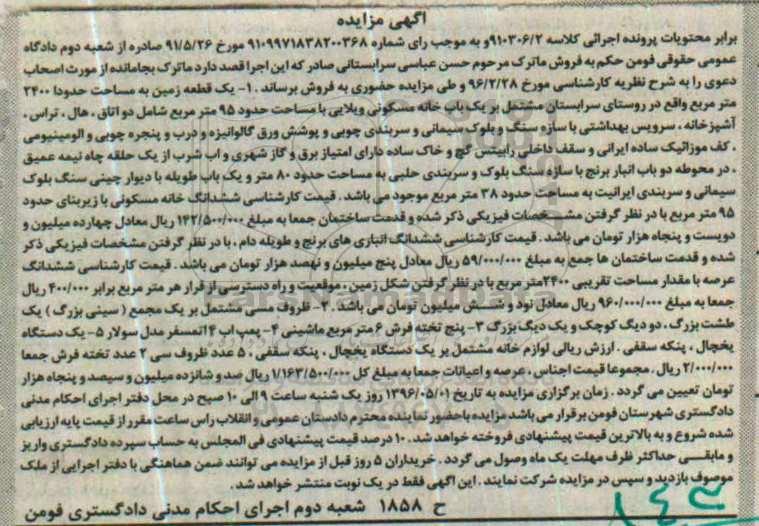 آگهی مزایده
برابر محتویات پرونده اجرائی کلاسه ۹۱۰۳۰۶/۲و به موجب رای شماره ۹۱۰۹۹۷۱۸۳۸۲۰۰۳۶۸ مورخ ۹۱/۵/۲۶ صادره از شعبه دوم دادگاه
عمومی حقوقی فومن حکم به فروش ماترک مرحوم حسن عباسی سرابستانی صادر که این اجرا قصد دارد ماترک بجامانده از مورث اصحاب
دعوی را به شرح نظریه کارشناسی مورخ ۹۶/۲/۲۸ و طی مزایده حضوری به فروش برساند . ۱- یک قطعه زمین به مساحت حدودا ۲۴۰۰
متر مربع واقع در روستای سرابستان مشتمل بر یک باب خانه مسکونی ویلایی با مساحت حدود ۹۵ متر مربع شامل دو اتاق ، هال ، تراس ،
آشپزخانه ، سرویس بهداشتی با سازه سنگ و بلوک سیمانی و سربندی چوبی و پوشش ورق گالوانیزه و درب و پنجره چوبی و الومینیومی
، کف موزائیک ساده ایرانی و سقف داخلی رابیتس گچ و خاک ساده دارای امتیاز برق و گاز شهری و اب شرب از یک حلقه چاه نیمه عمیق
، در محوطه دو باب انبار برنج با سازه سنگ بلوک و سربندی حلبی به مساحت حدود ۸۰ متر و یک باب طویله با دیوار چینی سنگ بلوک
سیمانی و سربندی ایرانیت به مساحت حدود ۳۸ متر مربع موجود می باشد . قیمت کارشناسی ششدانگ خانه مسکونی با زیربنای حدود
۹۵ متر مربع با در نظر گرفتن مشخصات فیزیکی ذکر شده و قدمت ساختمان جمعا به مبلغ ۱۴۲/۵۰۰/۰۰۰ ریال معادل چهارده میلیون و
دویست و پنجاه هزار تومان می باشد . قیمت کارشناسی ششدانگ انباری های برنج و طویله دام ، با در نظر گرفتن مشخصات فیزیکی ذکر
شده و قدمت ساختمان ها جمع به مبلغ ۵۹/۰۰۰/۰۰۰ ریال معادل پنج میلیون و نهصد هزار تومان می باشد . قیمت کارشناسی ششدانگ
عرصه با مقدار مساحت تقریبی ۲۴۰۰متر مربع با در نظر گرفتن شکل زمین ، موقعیت و راه دسترسی از قرار هر متر مربع برابر ۴۰۰/۰۰۰ ریال
جمعا به مبلغ ۹۶۰/۰۰۰/۰۰۰ ریال معادل نود و شش میلیون تومان می باشد . ۲- ظروف مسی مشتمل بر یک مجمع ( سینی بزرگ ) یک
طشت بزرگ ، دو دیگ کوچک و یک دیگ بزرگ ۳- پنج تخته فرش ۶ متر مربع ماشینی ۴- پمپ اب ۴ اتمسفر مدل سولار ۵- یک دستگاه
یخچال ، پنکه سقفی . ارزش ریالی لوازم خانه مشتمل بر یک دستگاه یخچال ، پنکه سقفی ، ۵ عدد ظروف سی ۲ عدد تخته فرش جمعا
۲/۰۰۰/۰۰۰ ریال . مجموعا قیمت اجناس ، عرصه و اعیانات جمعا به مبلغ کل ۱/۱۶۳/۵۰۰/۰۰۰ ریال صد و شانزده میلیون و سیصد و پنجاه هزار
تومان تعیین می گردد . زمان برگزاری مزایده به تاریخ ۱۳۹۶/۰۵/۰۱ روز یک شنبه ساعت ۹ الی ۱۰ صبح در محل دفتر اجرای احکام مدنی
دادگستری شهرستان فومن برقرار می باشد مزایده باحضور نماینده محترم دادستان عمومی و انقلاب راس ساعت مقرر از قیمت پایه ارزیابی
شده شروع و به بالاترین قیمت پیشنهادی فروخته خواهد شد . ۱۰ درصد قیمت پیشنهادی فی المجلس به حساب سپرده دادگستری واریز
و مابقی حداکثر ظرف مهلت یک ماه وصول می گردد . خریداران ۵ روز قبل از مزایده می توانند ضمن هماهنگی با دفتر اجرایی از ملک
موصوف بازدید و سپس در مزایده شرکت نمایند . این آگهی فقط در یک نوبت منتشر خواهد شد .
ح ۱۸۵۸ شعبه دوم اجرای احکام مدنی دادگستری فومن